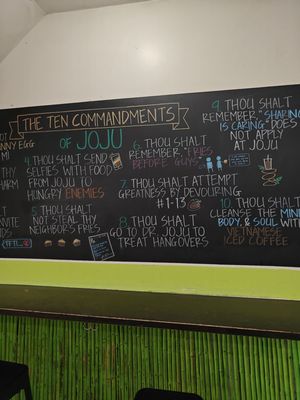 THE TEN COMMANDMENTS
OF JOJU
NNY EGG
MI
THY
HARM
4. THOU SHALT SEND
SELFIES WITH FOOD
FROM JOJU TO
HUNGRY ENEMIES
5. THOU SHALT
NOT STEAL THY
NEIGHBORS FRIES
6. THOU SHALT
REMEMBER, "FRIES
BEFORE GUYS"
7. THOU SHALT ATTEMPT
GREATNESS BY DEVOURING
#1-13
8. THOU SHALT
GO TO DR. JOJU TO
TREAT HANGOVERS
9. THOU SHALT
REMEMBER, "SHARING
IS CARING" DOES
NOT APPLY
AT JOJU
10. THOU SHALT
CLEANSE THE MIND
BODY, & SOUL WITH
VIETNAMESE
ICED COFFEE